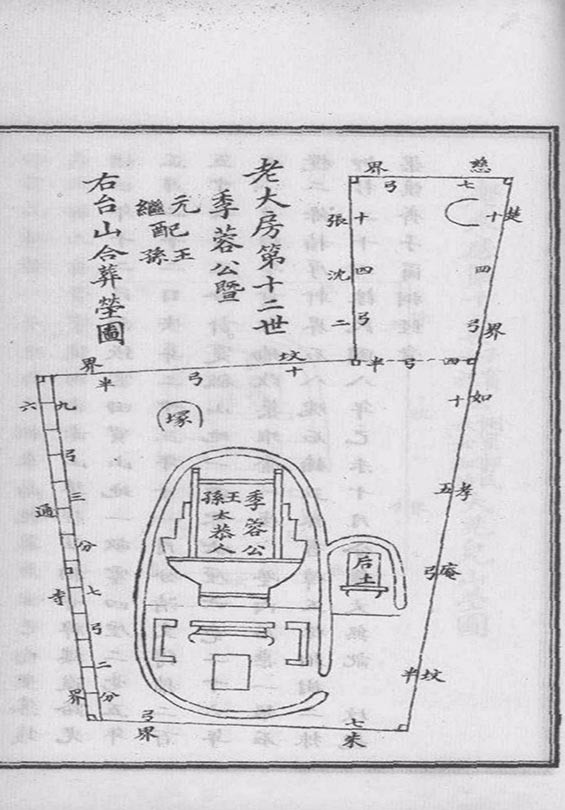 老大房第十二世
季蓉公暨
元配王
繼 孫
右台山合葬塋圖
慈七弓界
楚十四弓界
張沈二
十四弓
四弓半
如孝庵坟
十五弓半
坟十弓半界
六通寺界
九弓三分
七弓二分
朱七弓界
塚
季蓉公
王
孫太恭人
后土